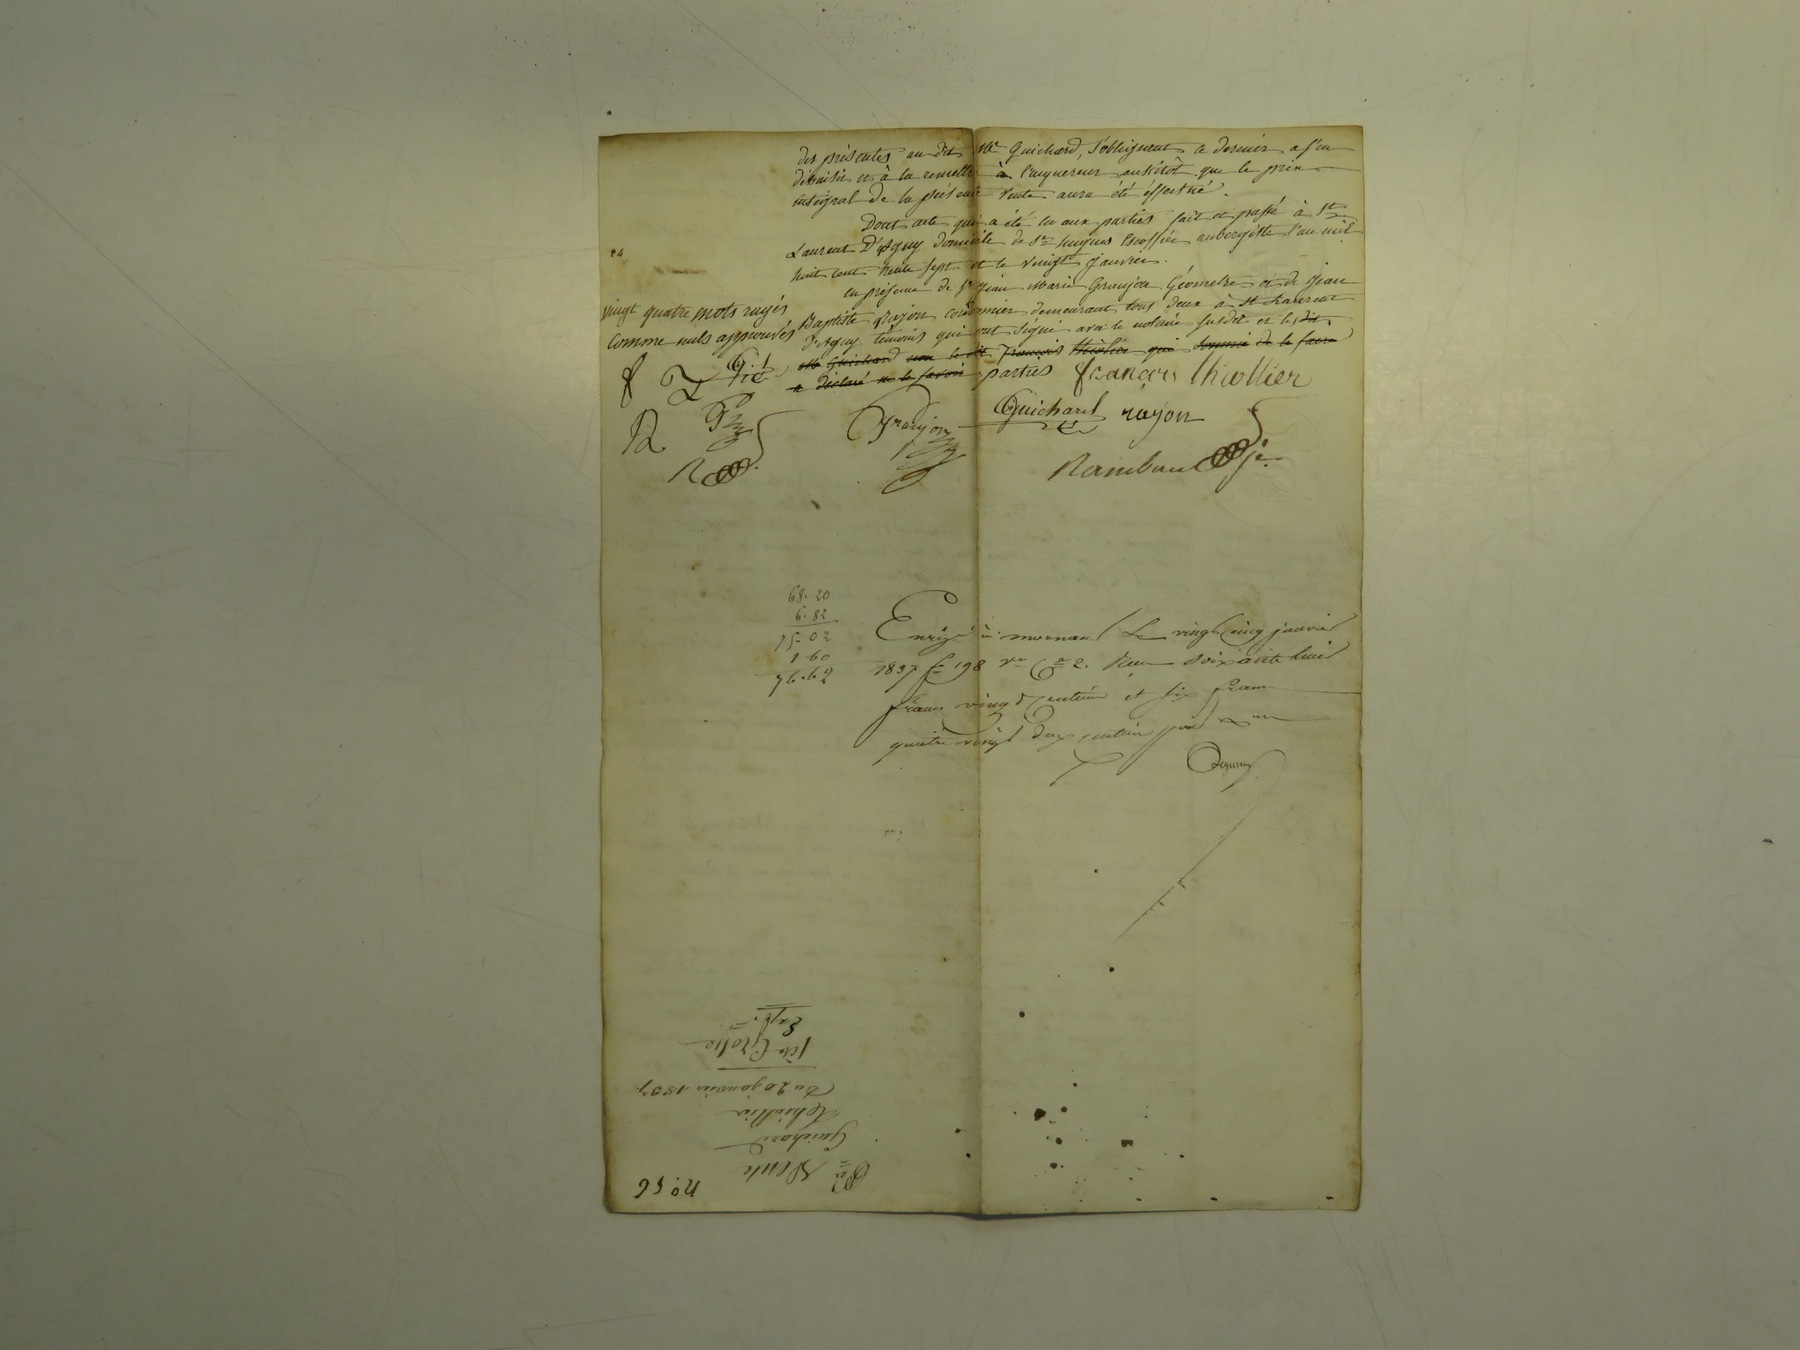 des présentes au dit Me Guichard, s'obligeant ce dernier a s'en
désaisir et à la remettre à l'acquereur aussitôt que le prix
intégral de la présente vente aura été effectué.
Dont acte qui a été lu aux parties fait et passé à St
Laurent D'Agny domicile de Sr aubergiste l'an mil
huit cent trente sept et le vingt janvier.
en présence de Sr jean Marie Granjon Géometre et de jean
Baptiste rajon cordonnier demeurant tous deux à St Laurent
d'Agny témoins qui ont signé avec le notaire susdit et les dit
Me Guichard non le dit françois thiolier qui de le faire
a déclaré ne le savoir parties françois thiollier
24
vingt quatre mots rayés
comme nuls approuvés
f T
Granjon
Guichard rajon
R
Rambaud je
68. 20
6. 82
75. 02
Enregé à mornant Le vingt cinq janvier
1837 fo 198 vo Ce 2. Reçu soixante huit
francs vingt centimes et six francs
quatre vingt deux centimes pour
no. 56
Vente
Guichard
thiollier
Du 20 janvier 1837
1ère Grosse
Exp.